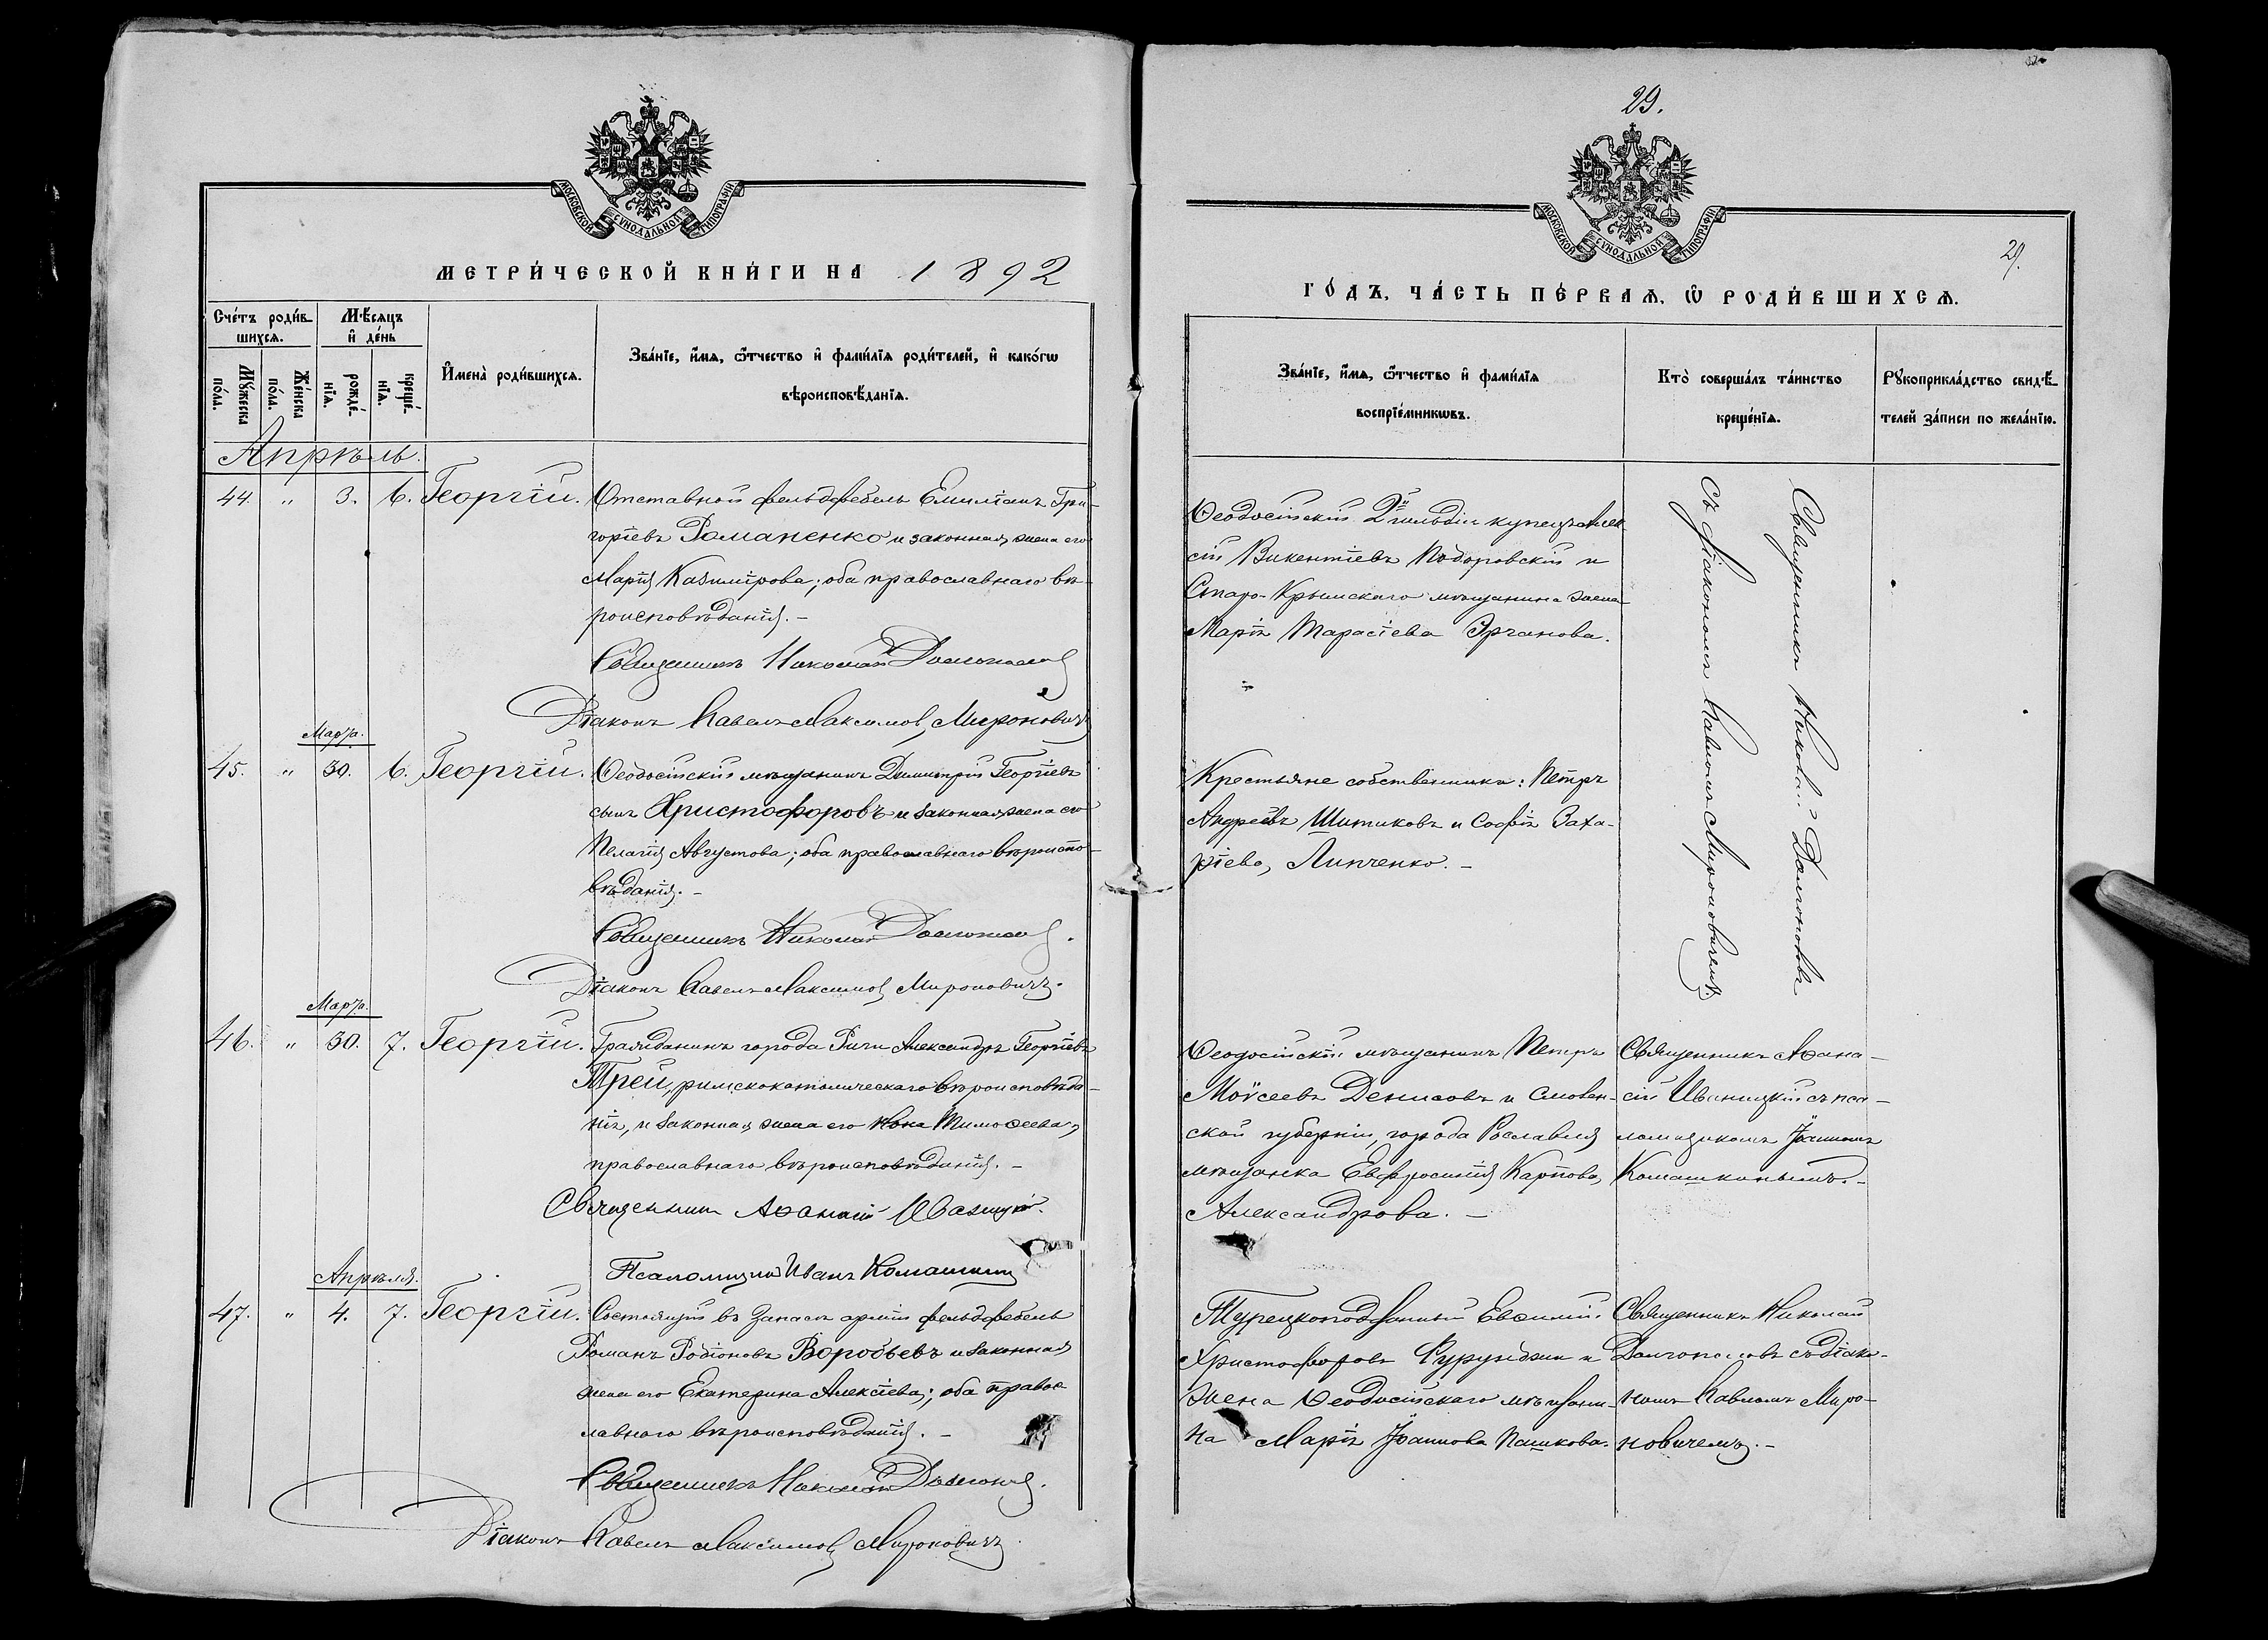 29.
МОСКОВСКОЙ СѴНОДАЛЬНОЙ ТИПОГРАФІИ
МОСКОВСКОЙ СѴНОДАЛЬНОЙ ТИПОГРАФІИ
29.
МЕТРИ́ЧЕСКОЙ КНИ́ГИ НА 1892
ГО́ДЪ, ЧА́СТЬ ПЕ́РВАѦ, Ѽ РОДИ́ВШИХСѦ.
Сче́тъ роди́в-
шихсѧ.
Мꙋ́жеска
по́ла.
Же́нска
по́ла.
Мѣ́сѧцъ
и҆ де́нь
рожде́-
нїѧ.
креще́-
нїѧ.
И҆мена̀ роди́вшихсѧ.
Зва́нїе, и҆́мѧ, ѻ҆́тчество и҆ фами́лїѧ роди́телей, и҆ како́гѡ
вѣроисповѣ́данїѧ.
Зва́нїе, и҆́мѧ, ѻ҆́тчество и҆ фами́лїѧ
воспрїе́мникѡвъ.
Кто̀ соверша́лъ та́инство
креще́нїѧ.
Рꙋкоприкла́дство свидѣ́-
телей за́писи по жела́нїю.
Апрѣль.
44. " 3. 6. Георгій.
Отставной фельдфебель Емиліанъ Гри-
горіевъ Романенко и законная жена его
Марія Казимірова; оба православнаго вѣ-
роисповѣданія. –
Священникъ Николай
Діаконъ Павелъ Максимов Мироновичъ
Ѳеодосійскій 2й гильдіи купецъ Алек
сій Викентіевъ Подоровскій и
Старо-Крымскаго мѣщанина жена
Марія Тарасіева Эрганова.
Священникъ Николай Долгополовъ
съ діакономъ Павломъ Мироновичемъ.
Марта.
45. " 30. 6. Георгій.
Ѳеодосійскій мѣщанинъ Димитрій Георгіевъ
сынъ Христофоровъ и законная жена его
Пелагія Августова; оба православнаго вѣроиспо-
вѣданія. –
Священникъ Николай
Діаконъ Павелъ Максимов Мироновичъ.
Крестьяне собственники: Петръ
Андреевъ Шитиковъ и Софія Заха-
ріева, Липченко. –
Марта.
46. " 30. 7. Георгій.
Гражданинъ города Риги Александръ Георгіевъ
Трей, римскокатолическаго вѣроисповѣда-
нія, и законная жена его Анна Тимоѳеева,
православнаго вѣроисповѣданія. –
Священникъ Аѳанасій Иваницкій.
Псаломщикъ Иванъ Комашкинъ
Ѳеодосійскій мѣщанинъ Петръ
Моѵсеевъ Денисовъ и Смолен-
ской губерніи, города Рославля
мѣщанка Евфросинія Карпова,
Александрова. –
Священникъ Аѳана-
сій Иваницкій съ пса-
ломщикомъ Іоанномъ
Комашкинымъ. –
Апрѣля.
47. " 4. 7. Георгій.
Состоящій въ запасѣ арміи фельдфебель
Романъ Родіоновъ Воробьевъ и законная
жена его Екатерина Алексіева; оба правос
лавнаго вѣроисповѣданія. –
Священникъ Николай
Діаконъ Павелъ Максимов Мироновичъ
Турецкоподданный Евѳимій
Христофоровъ Фурунджи и
жена Ѳеодосійскаго мѣщани-
на Марія Іоаннова Пашкова.
Священникъ Николай
Долгополовъ съ діако-
номъ Павломъ Миро-
новичемъ. –